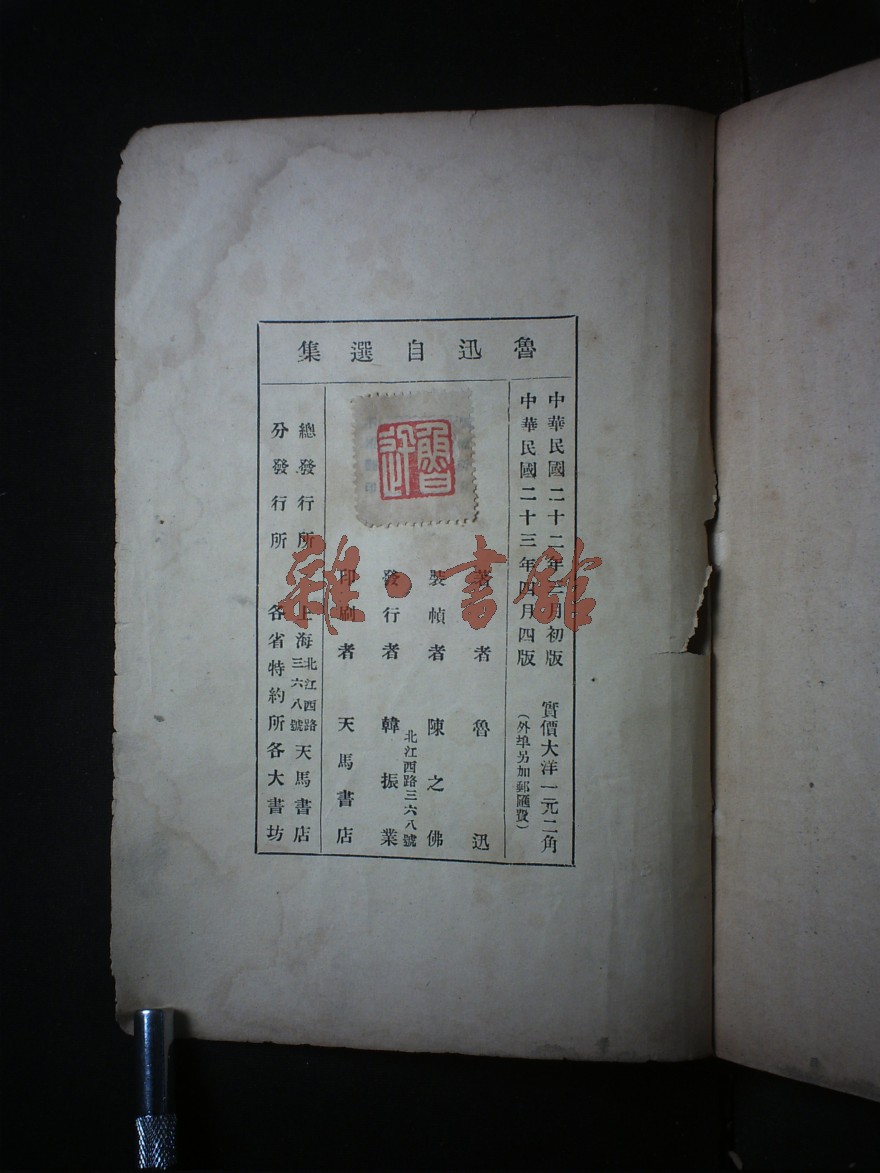 魯迅自選集
中華民國二十二年三月初版
實價大洋一元二角
中華民國二十三年四月四版
（外埠另加郵匯費）
著者 魯迅
裝幀者 陳之佛
發行者 韓振業
北江西路三六八號
印刷者 天馬書店
總發行所 上海北江西路三六八號天馬書店
分發行所 各省特約所各大書坊
魯迅
雜·書館